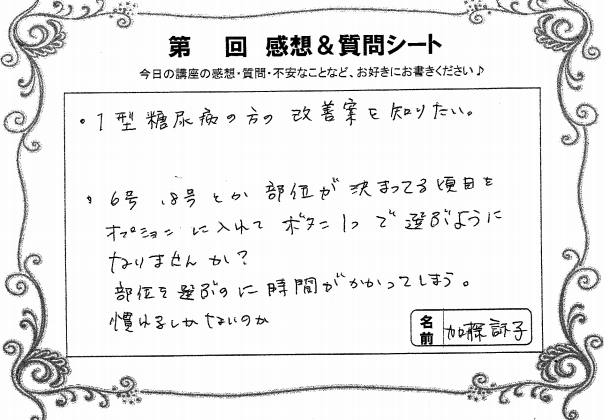 第　回 感想＆質問シート
今日の講座の感想・質問・不安なことなど、お好きにお書きください♪
・1型糖尿病の方の改善案を知りたい。
・6号、8号とか部位が決まってる項目を
オプションに入れて ボタン1つで選ぶように
なりませんか？
部位を選ぶのに時間がかかってしまう。
慣れるしかないのか
名前 加藤 子